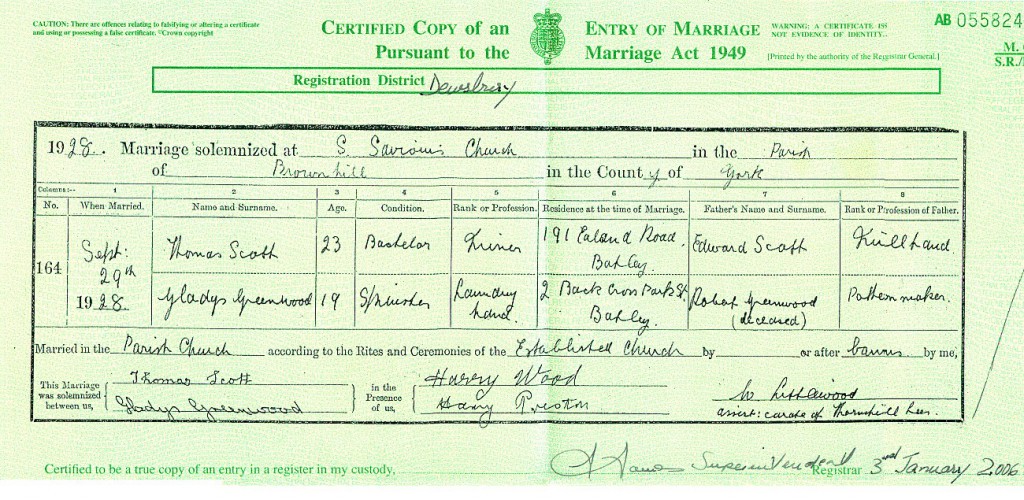 CAUTION: There are offences relating to falsifying or altering a certificate
and using or possessing a false certificate. ©Crown copyright
CERTIFIED COPY of an ENTRY OF MARRIAGE
Pursuant to the Marriage Act 1949
WARNING: A CERTIFICATE IS
NOT EVIDENCE OF IDENTITY.
[Printed by the authority of the Registrar General.]
AB 055824
M.
S.R./
Registration District Dewsbury
1928. Marriage solemnized at S. Saviour's Church in the Parish
of Brownhill in the County of York
Columns:— 1 2 3 4 5 6 7 8
No. When Married. Name and Surname. Age. Condition. Rank or Profession. Residence at the time of Marriage. Father's Name and Surname. Rank or Profession of Father.
164 Sept: 29th 1928. Thomas Scott 23 Bachelor 191 Ealand Road, Batley. Edward Scott
Gladys Greenwood 19 Spinster Laundry hand. 2 Back Cross Park St. Batley. Robert Greenwood (deceased) Pattern maker.
Married in the Parish Church according to the Rites and Ceremonies of the Established Church by or after banns by me,
This Marriage was solemnized between us, Thomas Scott
Gladys Greenwood
in the Presence of us, Harry Wood
Harry Preston
W. Littlewood
assist: curate of Thornhill Lees.
Certified to be a true copy of an entry in a register in my custody, Superintendent Registrar 3rd January 2006